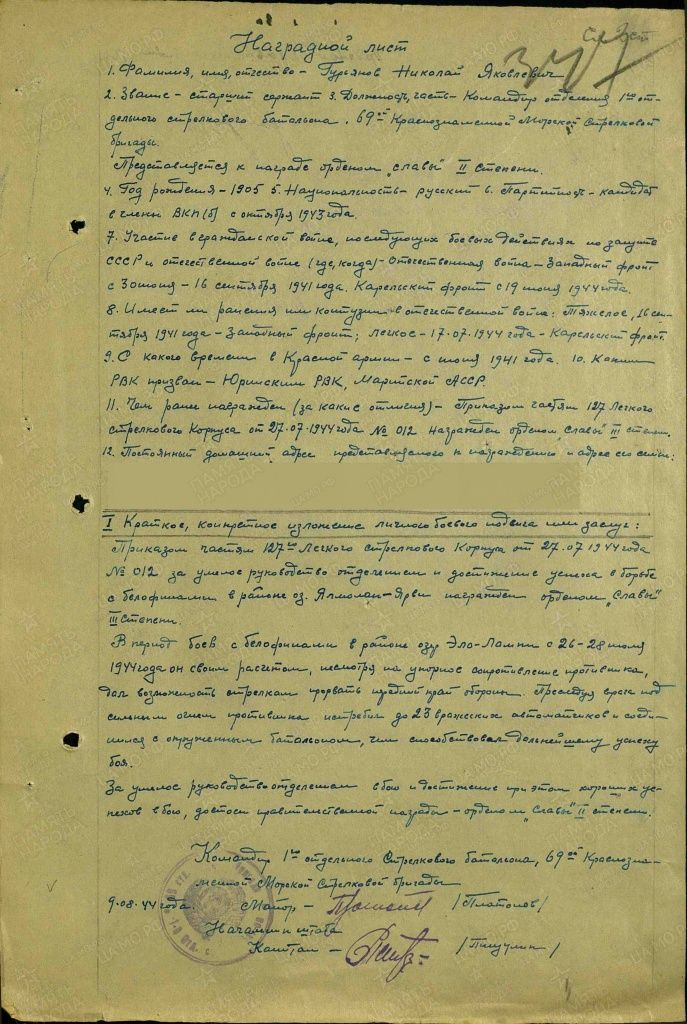 Наградной лист
1. Фамилия, имя, отчество – Гурьянов Николай Яковлевич
2. Звание – старший сержант 3. Должность, часть – Командир отделения 1го от-
дельного стрелкового батальона. 69ой Краснознаменной Морской Стрелковой
бригады.
Представляется к награде орденом „Славы" II Степени.
4. Год рождения – 1905 5. Национальность – русский 6. Партийность – кандидат
в члены ВКП(б) с октября 1943 года.
7. Участие в гражданской войне, последующих боевых действиях по защите
СССР и отечественной войне (где, когда) – Отечественная война – Западный фронт
с 3 июня – 16 сентября 1941 года. Карельский фронт с 19 июня 1944 года.
8. Имеет ли ранения или контузии в отечественной войне: Тяжелое, 16 сен-
тября 1941 года – Западный фронт; легкое – 17.07.1944 года – Карельский фронт.
9. С какого времени в Красной армии – с июня 1941 года. 10. Каким
РВК призван – Юринским РВК, Марийской АССР.
11. Чем ранее награжден (за какие отличия) – Приказом частям 127 Легкого
стрелкового Корпуса от 27.07.1944 года № 012 награжден орденом „Славы" III степени.
12. Постоянный домашний адрес представляемого к награждению и адрес его семьи:
I Краткое, конкретное изложение личного боевого подвига или заслуг:
Приказом частям 127го Легкого стрелкового Корпуса от 27.07 1944 года
№ 012 за умелое руководство отделением и достижение успеха в борьбе
с белофинами в районе оз. Ялмолан-Ярви награжден орденом „Славы"
III Степени.
В период боев с белофинами в районе озер Эло-Лампи с 26-28 июля
1944 года он своим расчетом, несмотря на упорное сопротивление противника,
дал возможность стрелкам прорвать передний край обороны. Преследуя врага под
сильным огнем противника истребил до 23 вражеских автоматчиков и соеди-
нился с окруженным батальоном, чем способствовал дальнейшему успеху
боя.
За умелое руководство отделением в бою и достижение при этом хороших ус-
пехов в бою, достоин правительственной награды – орденом „Славы" II степени.
Командир 1го отдельного Стрелкового батальона, 69ой Краснозна-
менной Морской Стрелковой бригады
9.08.44 года. Майор – /Платонов/
Начальник штаба
Капитан – /Пищулин/